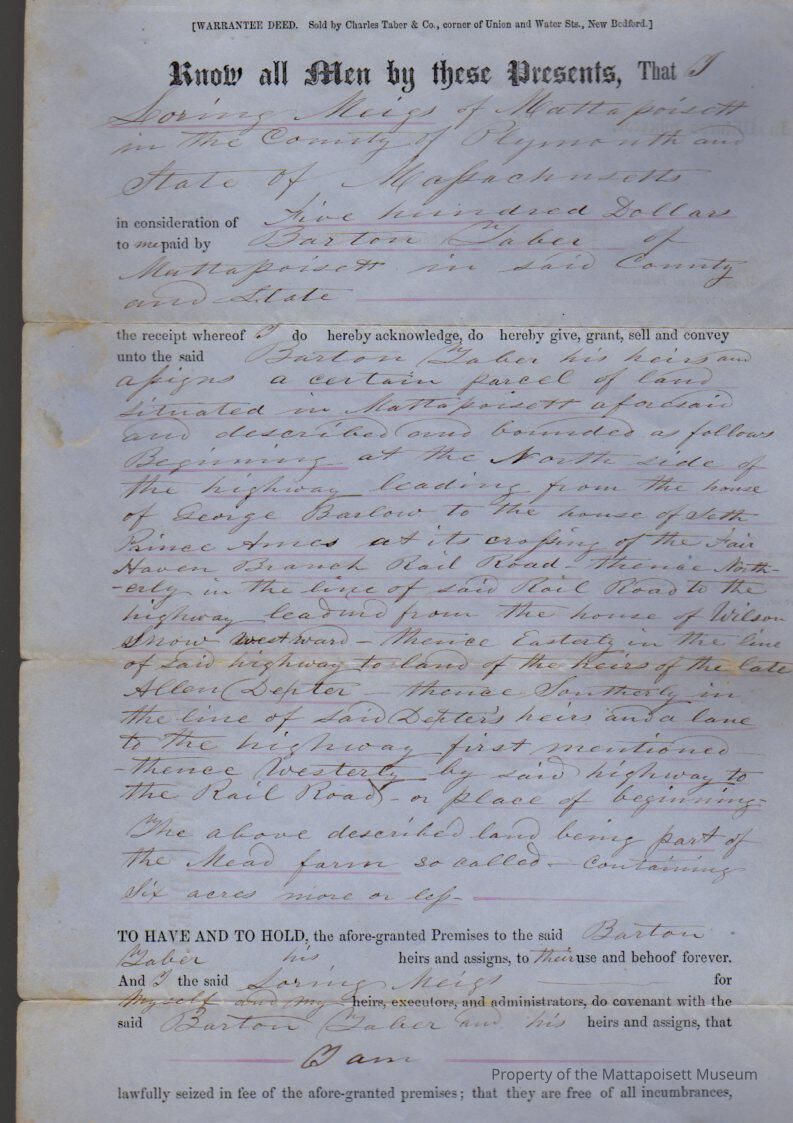 [WARRANTEE DEED. Sold by Charles Taber & Co., corner of Union and Water Sts., New Bedford.]
Know all Men by these Presents, That I
Loring Meigs of Mattapoisett
in the County of Plymouth and
State of Massachusetts
in consideration of Five hundred Dollars
to me paid by Barton Taber of
Mattapoisett in said County
and State
the receipt whereof I do hereby acknowledge, do hereby give, grant, sell and convey
unto the said Barton Taber his heirs and
assigns a certain parcel of land
situated in Mattapoisett aforesaid
and described and bounded as follows
Beginning at the North side of
the highway leading from the house
of George Barlow to the house of Seth
Prince Ames at its crossing of the Fair
Haven Branch Rail Road - thence North-
-erly in the line of said Rail Road to the
highway leadind from the house of Wilson
Snow westward - thence Easterly in the line
of said highway to land of the heirs of the late
Allen Depter - thence Southerly in
the line of said Depter's heirs and a lane
to the highway first mentioned -
- thence Westerly by said highway to
the Rail Road - or place of beginning -
The above described land being part of
the Mead farm so called - containing
Six acres more or less -
TO HAVE AND TO HOLD, the afore-granted Premises to the said Barton
Taber his heirs and assigns, to their use and behoof forever.
And I the said Loring Meigs for
myself and my heirs, executors, and administrators, do covenant with the
said Barton Taber and his heirs and assigns, that
I am
Property of the Mattapoisett Museum
lawfully seized in fee of the afore-granted premises; that they are free of all incumbrances,